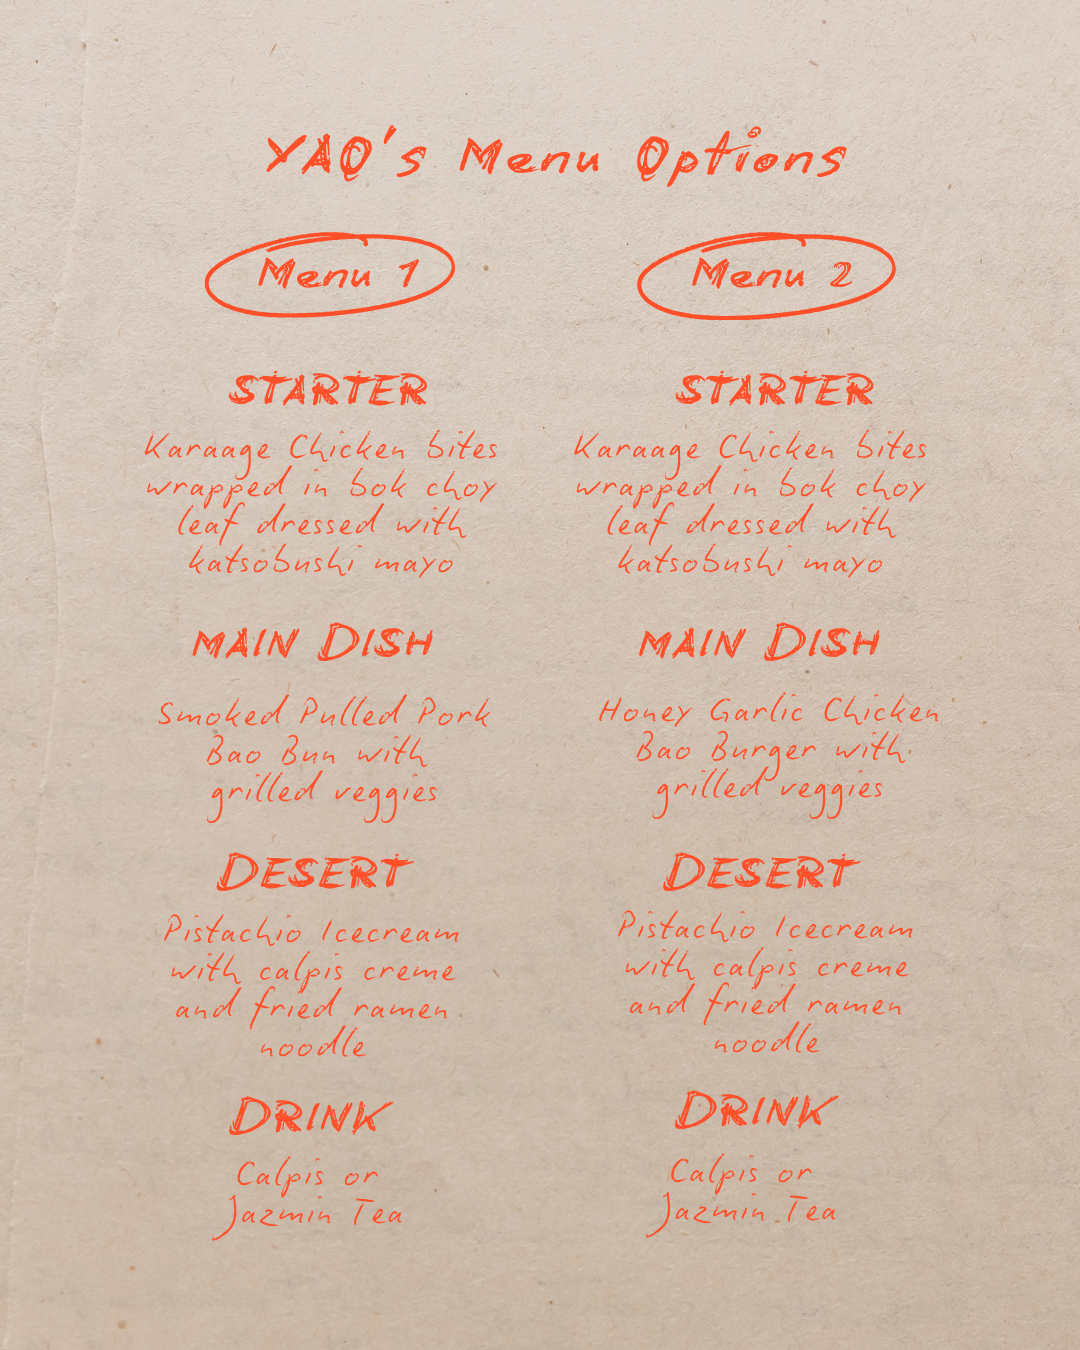 YAQ's Menu Options
Menu 1
STARTER
Karaage Chicken bites
wrapped in bok choy
leaf dressed with
katsobushi mayo
MAIN DISH
Smoked Pulled Pork
Bao Bun with
grilled veggies
DESERT
Pistachio Icecream
with calpis creme
and fried ramen
noodle
DRINK
Calpis or
Jazmin Tea
Menu 2
STARTER
Karaage Chicken bites
wrapped in bok choy
leaf dressed with
katsobushi mayo
MAIN DISH
Honey Garlic Chicken
Bao Burger with
grilled veggies
DESERT
Pistachio Icecream
with calpis creme
and fried ramen
noodle
DRINK
Calpis or
Jazmin Tea